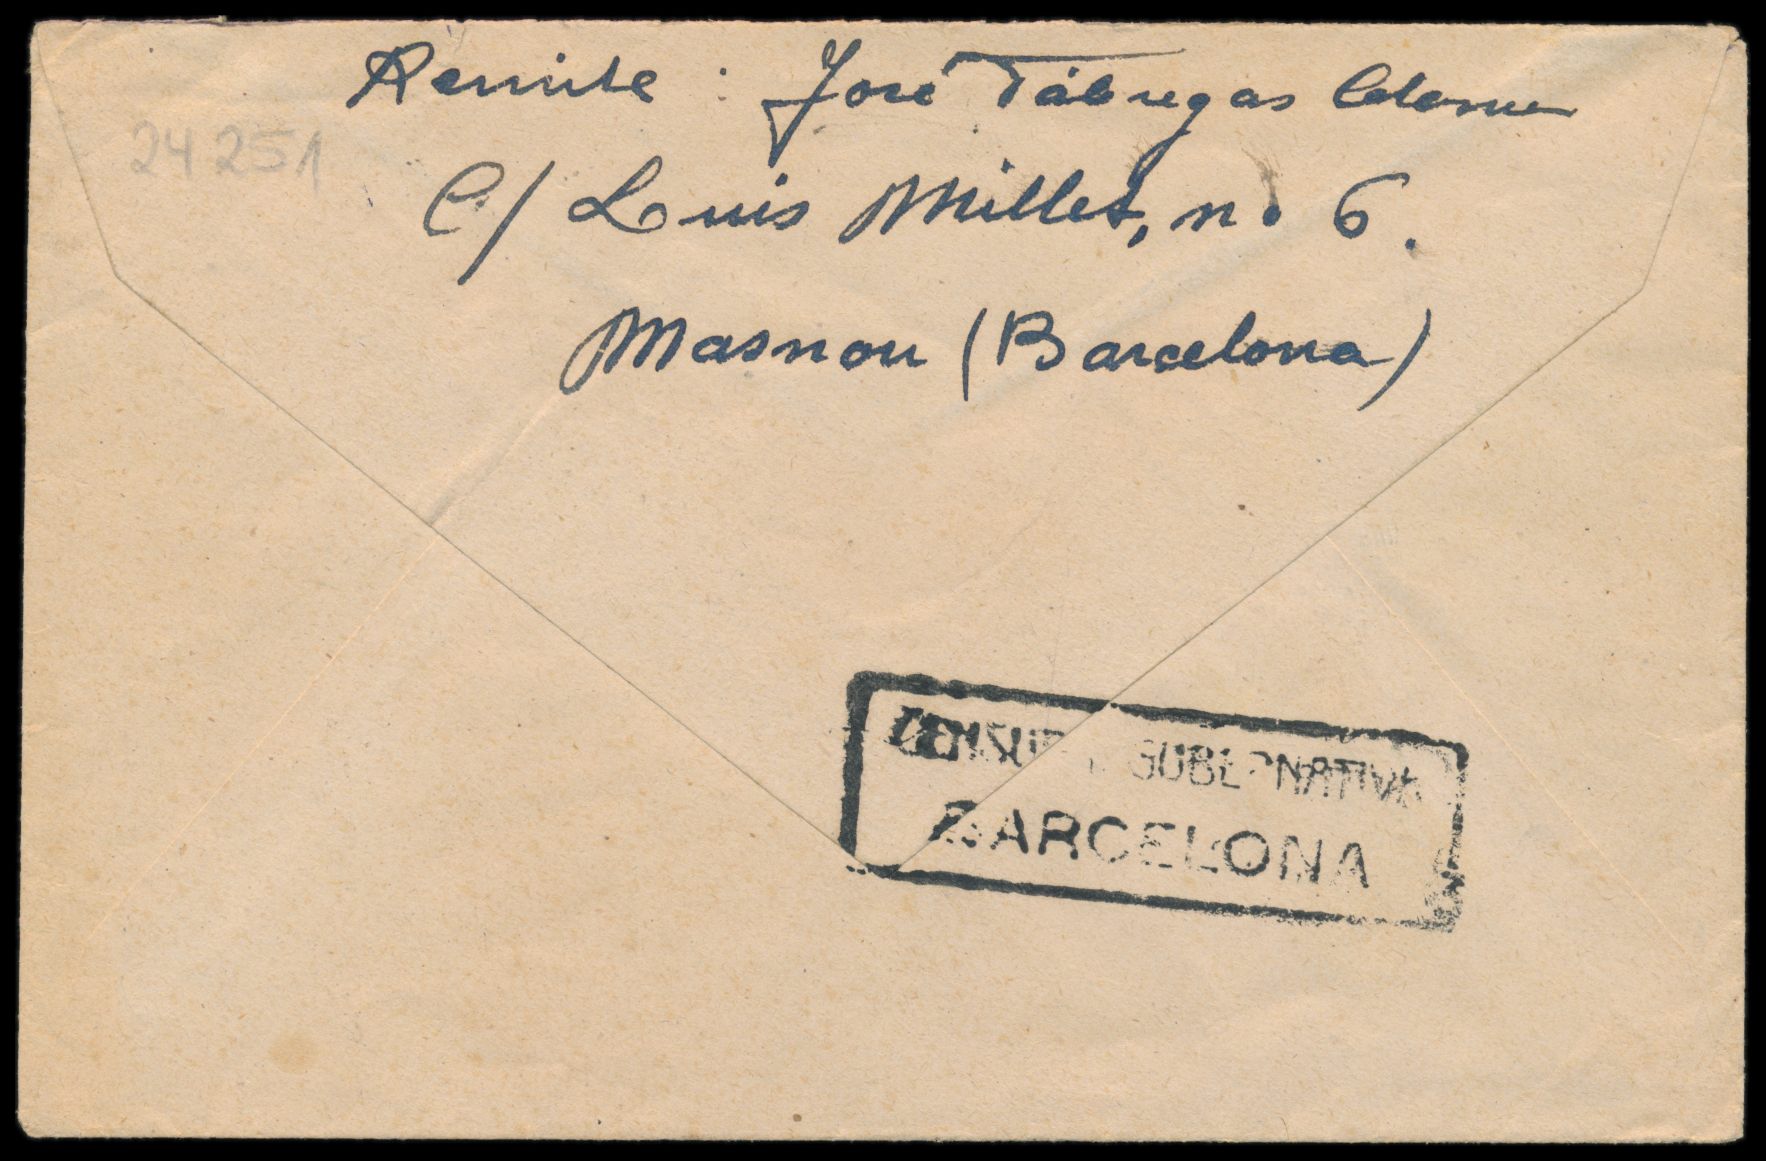 Remite: José Fábregas Colomer
24251
C/ Luis Millet, nº 6.
Masnou (Barcelona)
CENSURA GUBERNATIVA
BARCELONA